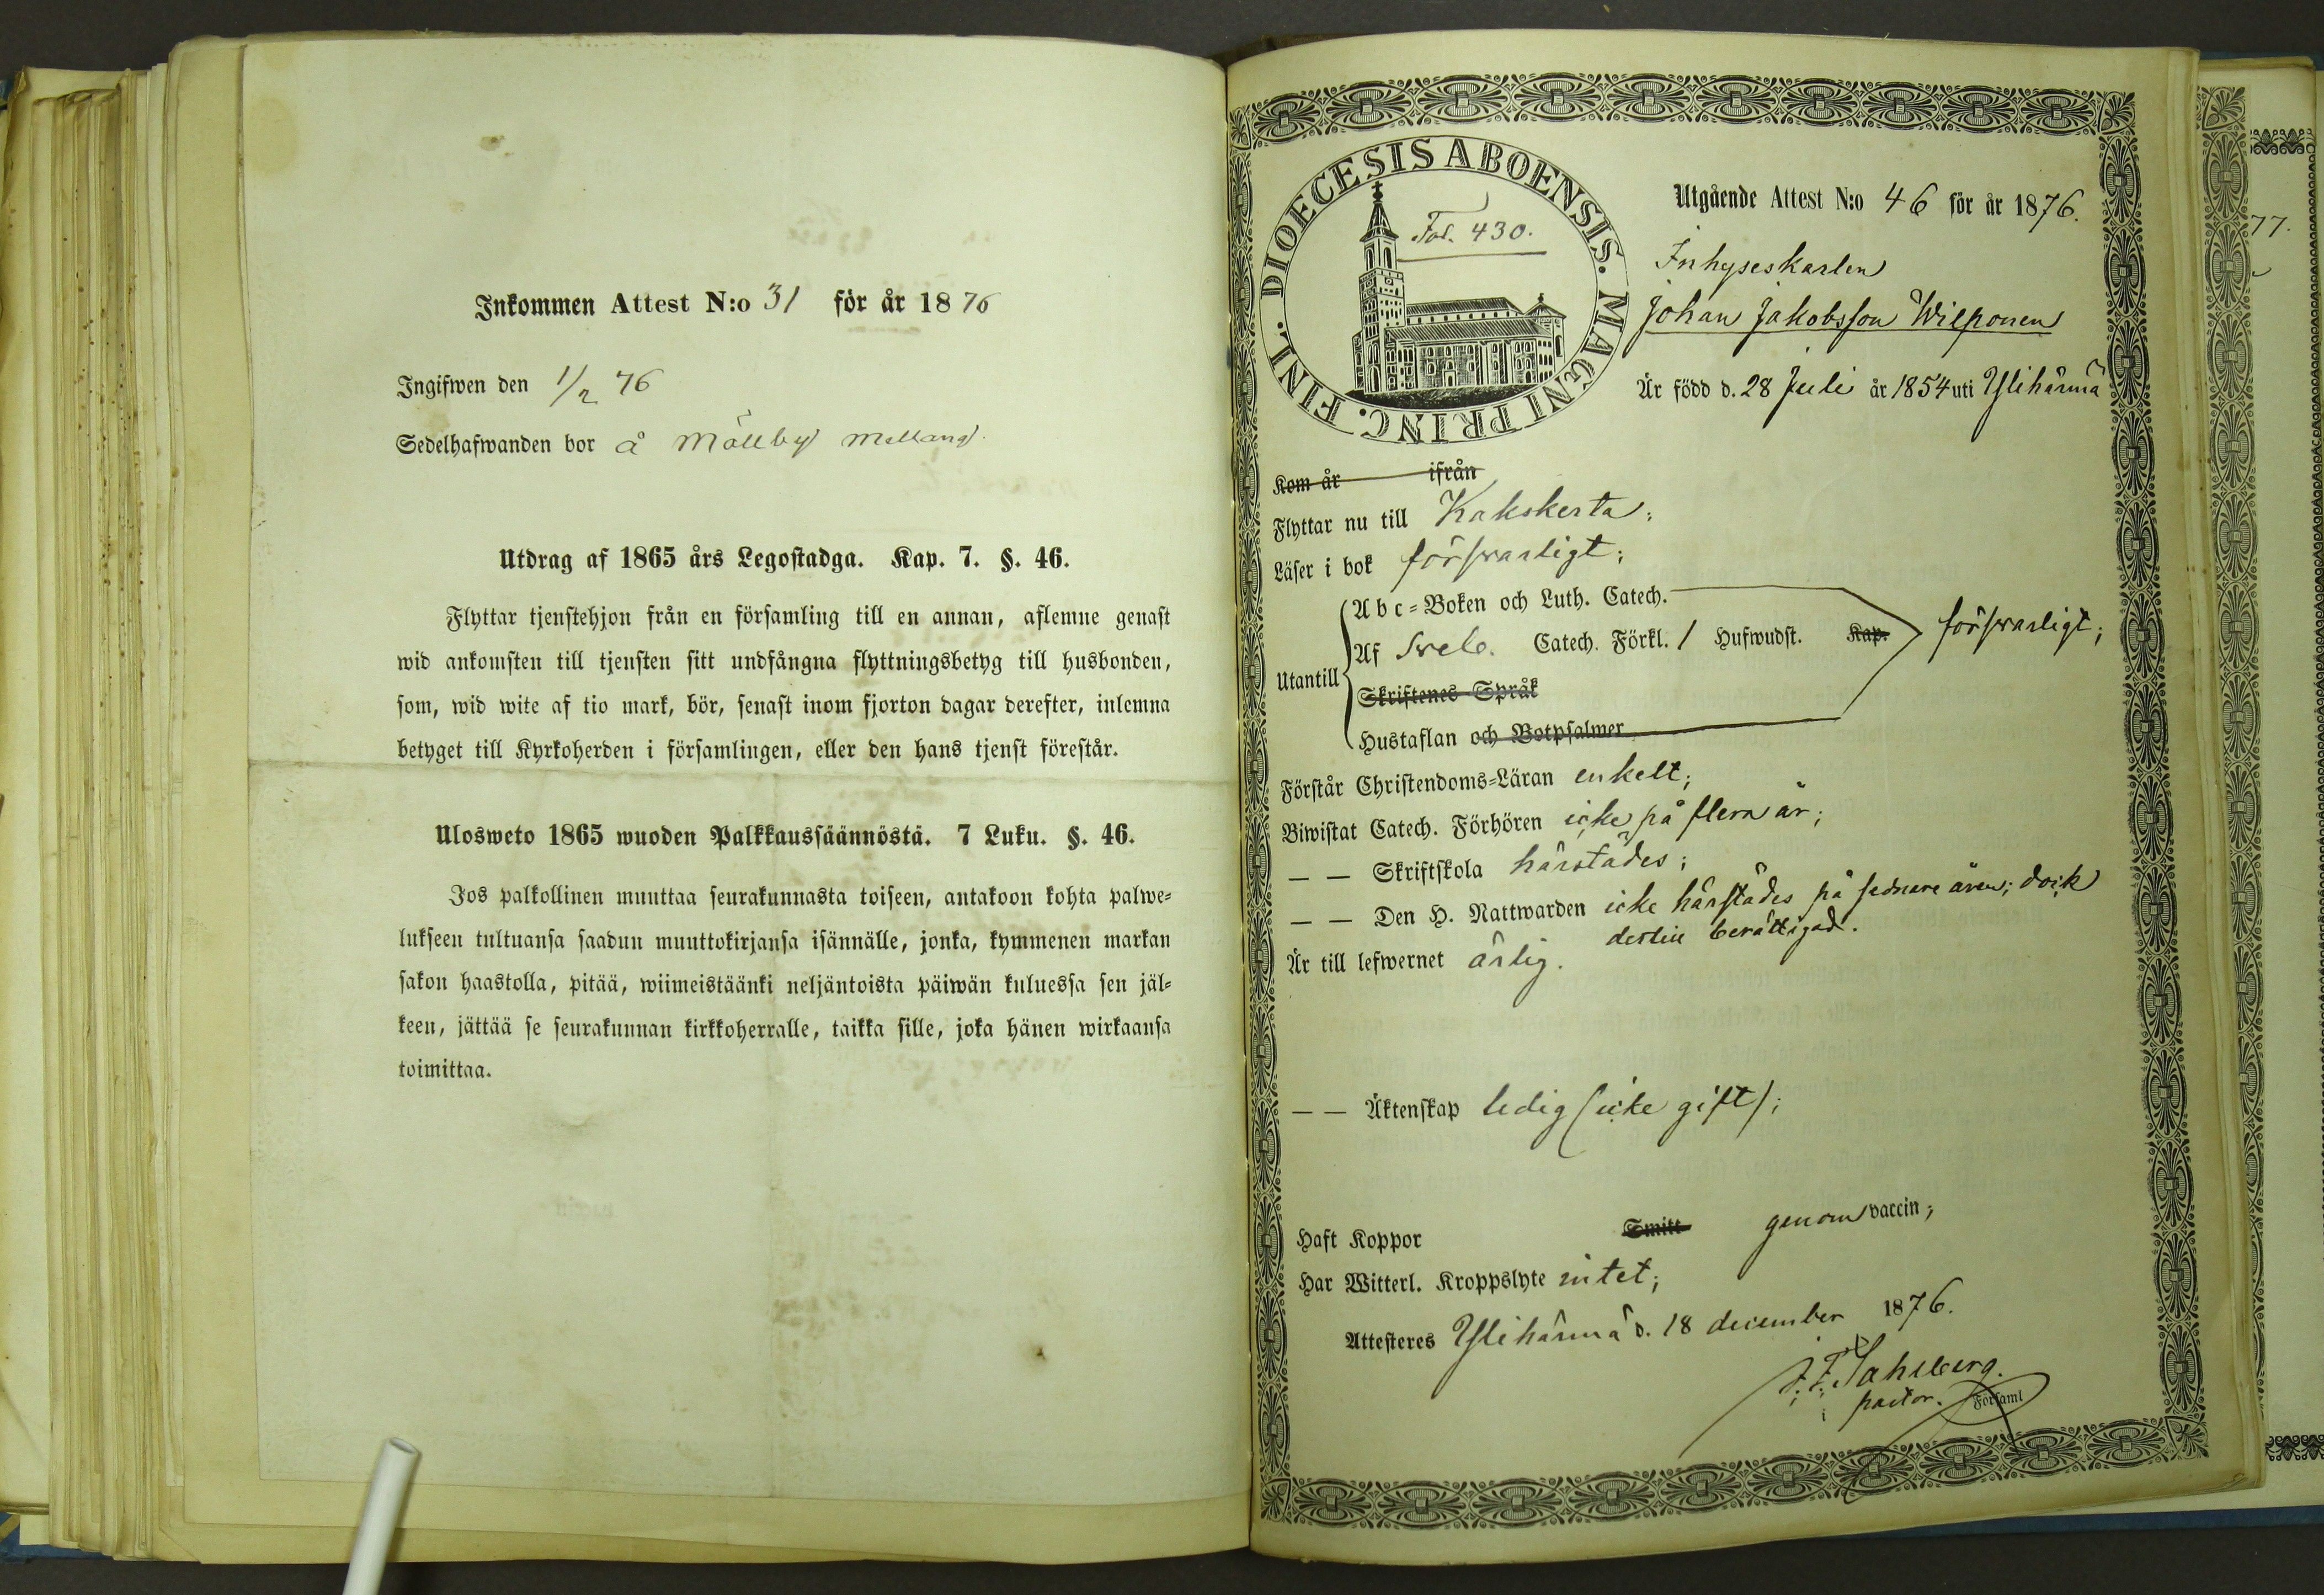 Inkommen Attest N:o 31 för år 1876
Ingifwen den 1/2 76
Sedelhafwanden bor å Mällby Mellang.
Utdrag af 1865 års Legostadga. Kap. 7. §. 46.
Flyttar tjenstehjon från en församling till en annan, aflemne genast
wid ankomsten till tjensten sitt undfångna flyttningsbetyg till husbonden,
som, wid wite af tio mark, bör, senast inom fjorton dagar derefter, inlemna
betyget till Kyrkoherden i församlingen, eller den hans tjenst förestår.
Ulosweto 1865 wuoden Palkkaussäännöstä. 7 Luku. §. 46.
Jos palkollinen muuttaa seurakunnasta toiseen, antakoon kohta palwe=
lukseen tultuansa saadun muuttokirjansa isännälle, jonka, kymmenen markan
sakon haastolla, pitää, wiimeistäänki neljäntoista päiwän kuluessa sen jäl=
keen, jättää se seurakunnan kirkkoherralle, taikka sille, joka hänen wirkaansa
toimittaa.
DIOECESIS ABOENSIS. MAGNI PRINC. FINL.
Fol. 430.
Utgående Attest N:o 46 för år 1876.
Inhyseskarlen
Johan Jakobsson Wilponen
Är född d. 28 Juli år 1854 uti Ylihärmä
Kom år ifrån
Flyttar nu till Kakskerta;
Läser i bok försvarligt;
Utantill
Abc=Boken och Luth. Catech.
Af Sveb. Catech. Förkl. 1 Hufwudst. Kap. försvarligt;
Skriftenes Språk
Hustaflan och Botpsalmer
Förstår Christendoms=Läran enkelt;
Biwistat Catech. Förhören icke på flera år;
— — Skriftskola härstädes;
— — Den H. Nattwarden icke härstädes på sednare åren; dock
dertill berättigad.
Är till lefwernet ärlig.
— — Äktenskap ledig (icke gift);
Haft Koppor Smitt genom vaccin;
Har Witterl. Kroppslyte intet;
Attesteres Ylihärmä d. 18 december 1876.
J. F. Sahlberg.
pastor. Församl
77.